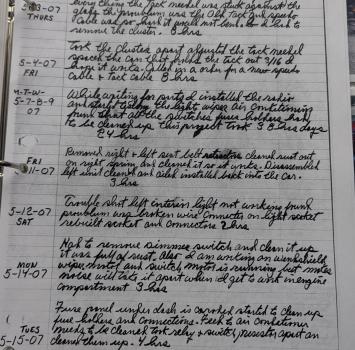 every thing the Tack needel was stuck against the
5-3-07 glass the problum was the Old Tack and speedo
THURS Cable was so hard it would not bend so I had to
remove the cluster. 8 hrs
Took the Cluster apart adjusted the tack needel
5-4-07 spaced the can that held the tack out 3/16 I
FRI hope it works. Called in a order for a new speedo
Cable & Tack cable 8 hrs
M-T-W- While waiting for parts I installed the radio
5-7-8-9 and started testing the light wiper air Conditioning
07 found that all the switches fuse holders have
to be cleaned up this project took 3 8 hrs days
24 hrs
Removed right & left seat belt cleaned rust out
FRI on right spring and cleaned it so it works. Disassembled
5-11-07 left side cleaned and oiled installed back into the car.
3 hrs
Trouble shot left interior light not working found
5-12-07 problum was broken wire Connector on light socket
SAT rebuilt socket and Connectors 2 hrs
Had to remove dimmer switch and clean it up
it was full of rust. Also I am working on windshield
MON wiper motor and switch motor is running just makes
5-14-07 noise will take it apart when I get to work in engine
compartment 3 hrs
Fuse panel under dash is caroded started to clean up
fuse holders and Connections. Feed to air Conditioner
TUES needs to be cleaned took relay & switch, resister apart an
5-15-07 cleaned them up. 4 hrs